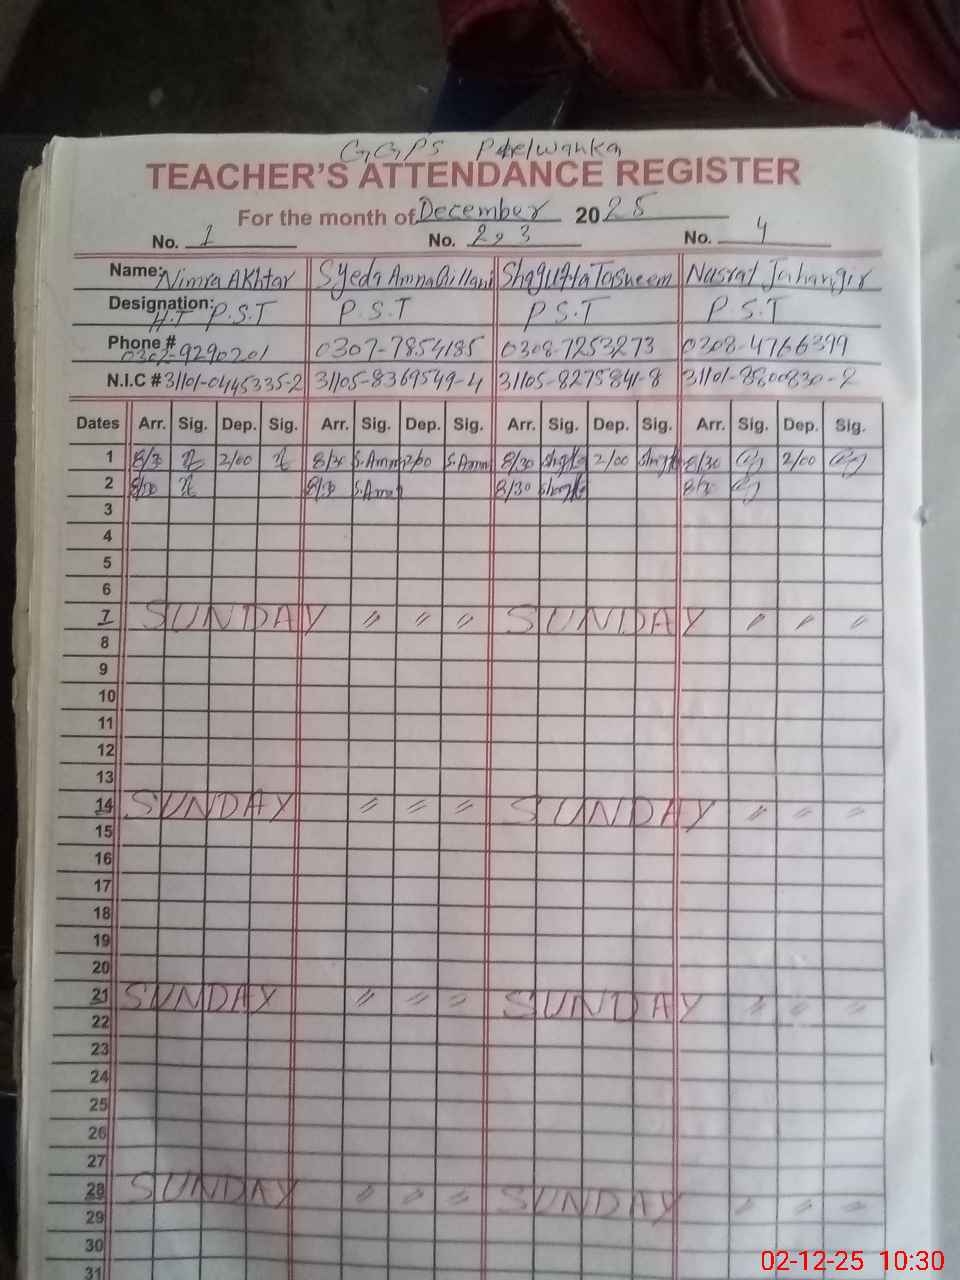 G.G.P.S
TEACHER'S ATTENDANCE REGISTER
For the month of December 2025
No. 1 No. 2, 3 No. 4
Name: Nimra Akhtar Syeda Amna Gillani Shagufta Tasneem Nusrat Jahangir
Designation: H.T P.S.T P.S.T P.S.T P.S.T
Phone # 0302-9290201 0307-7854185 0308-7253273 0308-4766399
N.I.C # 31101-0445335-2 31105-8369549-4 31105-8275841-8 31101-8800830-2
Dates Arr. Sig. Dep. Sig. Arr. Sig. Dep. Sig. Arr. Sig. Dep. Sig. Arr. Sig. Dep. Sig.
1 8/30 2/00 8/30 S.Amna 2/00 S.Amna 8/30 2/00 8/30 2/00
2 8/30 8/30 S.Amna 8/30 8/30
3
4
5
6
7 SUNDAY 〃 〃 〃 SUNDAY 〃 〃 〃
8
9
10
11
12
13
14 SUNDAY 〃 〃 〃 SUNDAY 〃 〃 〃
15
16
17
18
19
20
21 SUNDAY 〃 〃 〃 SUNDAY 〃 〃 〃
22
23
24
25
26
27
28 SUNDAY 〃 〃 〃 SUNDAY 〃 〃 〃
29
30
31
02-12-25 10:30